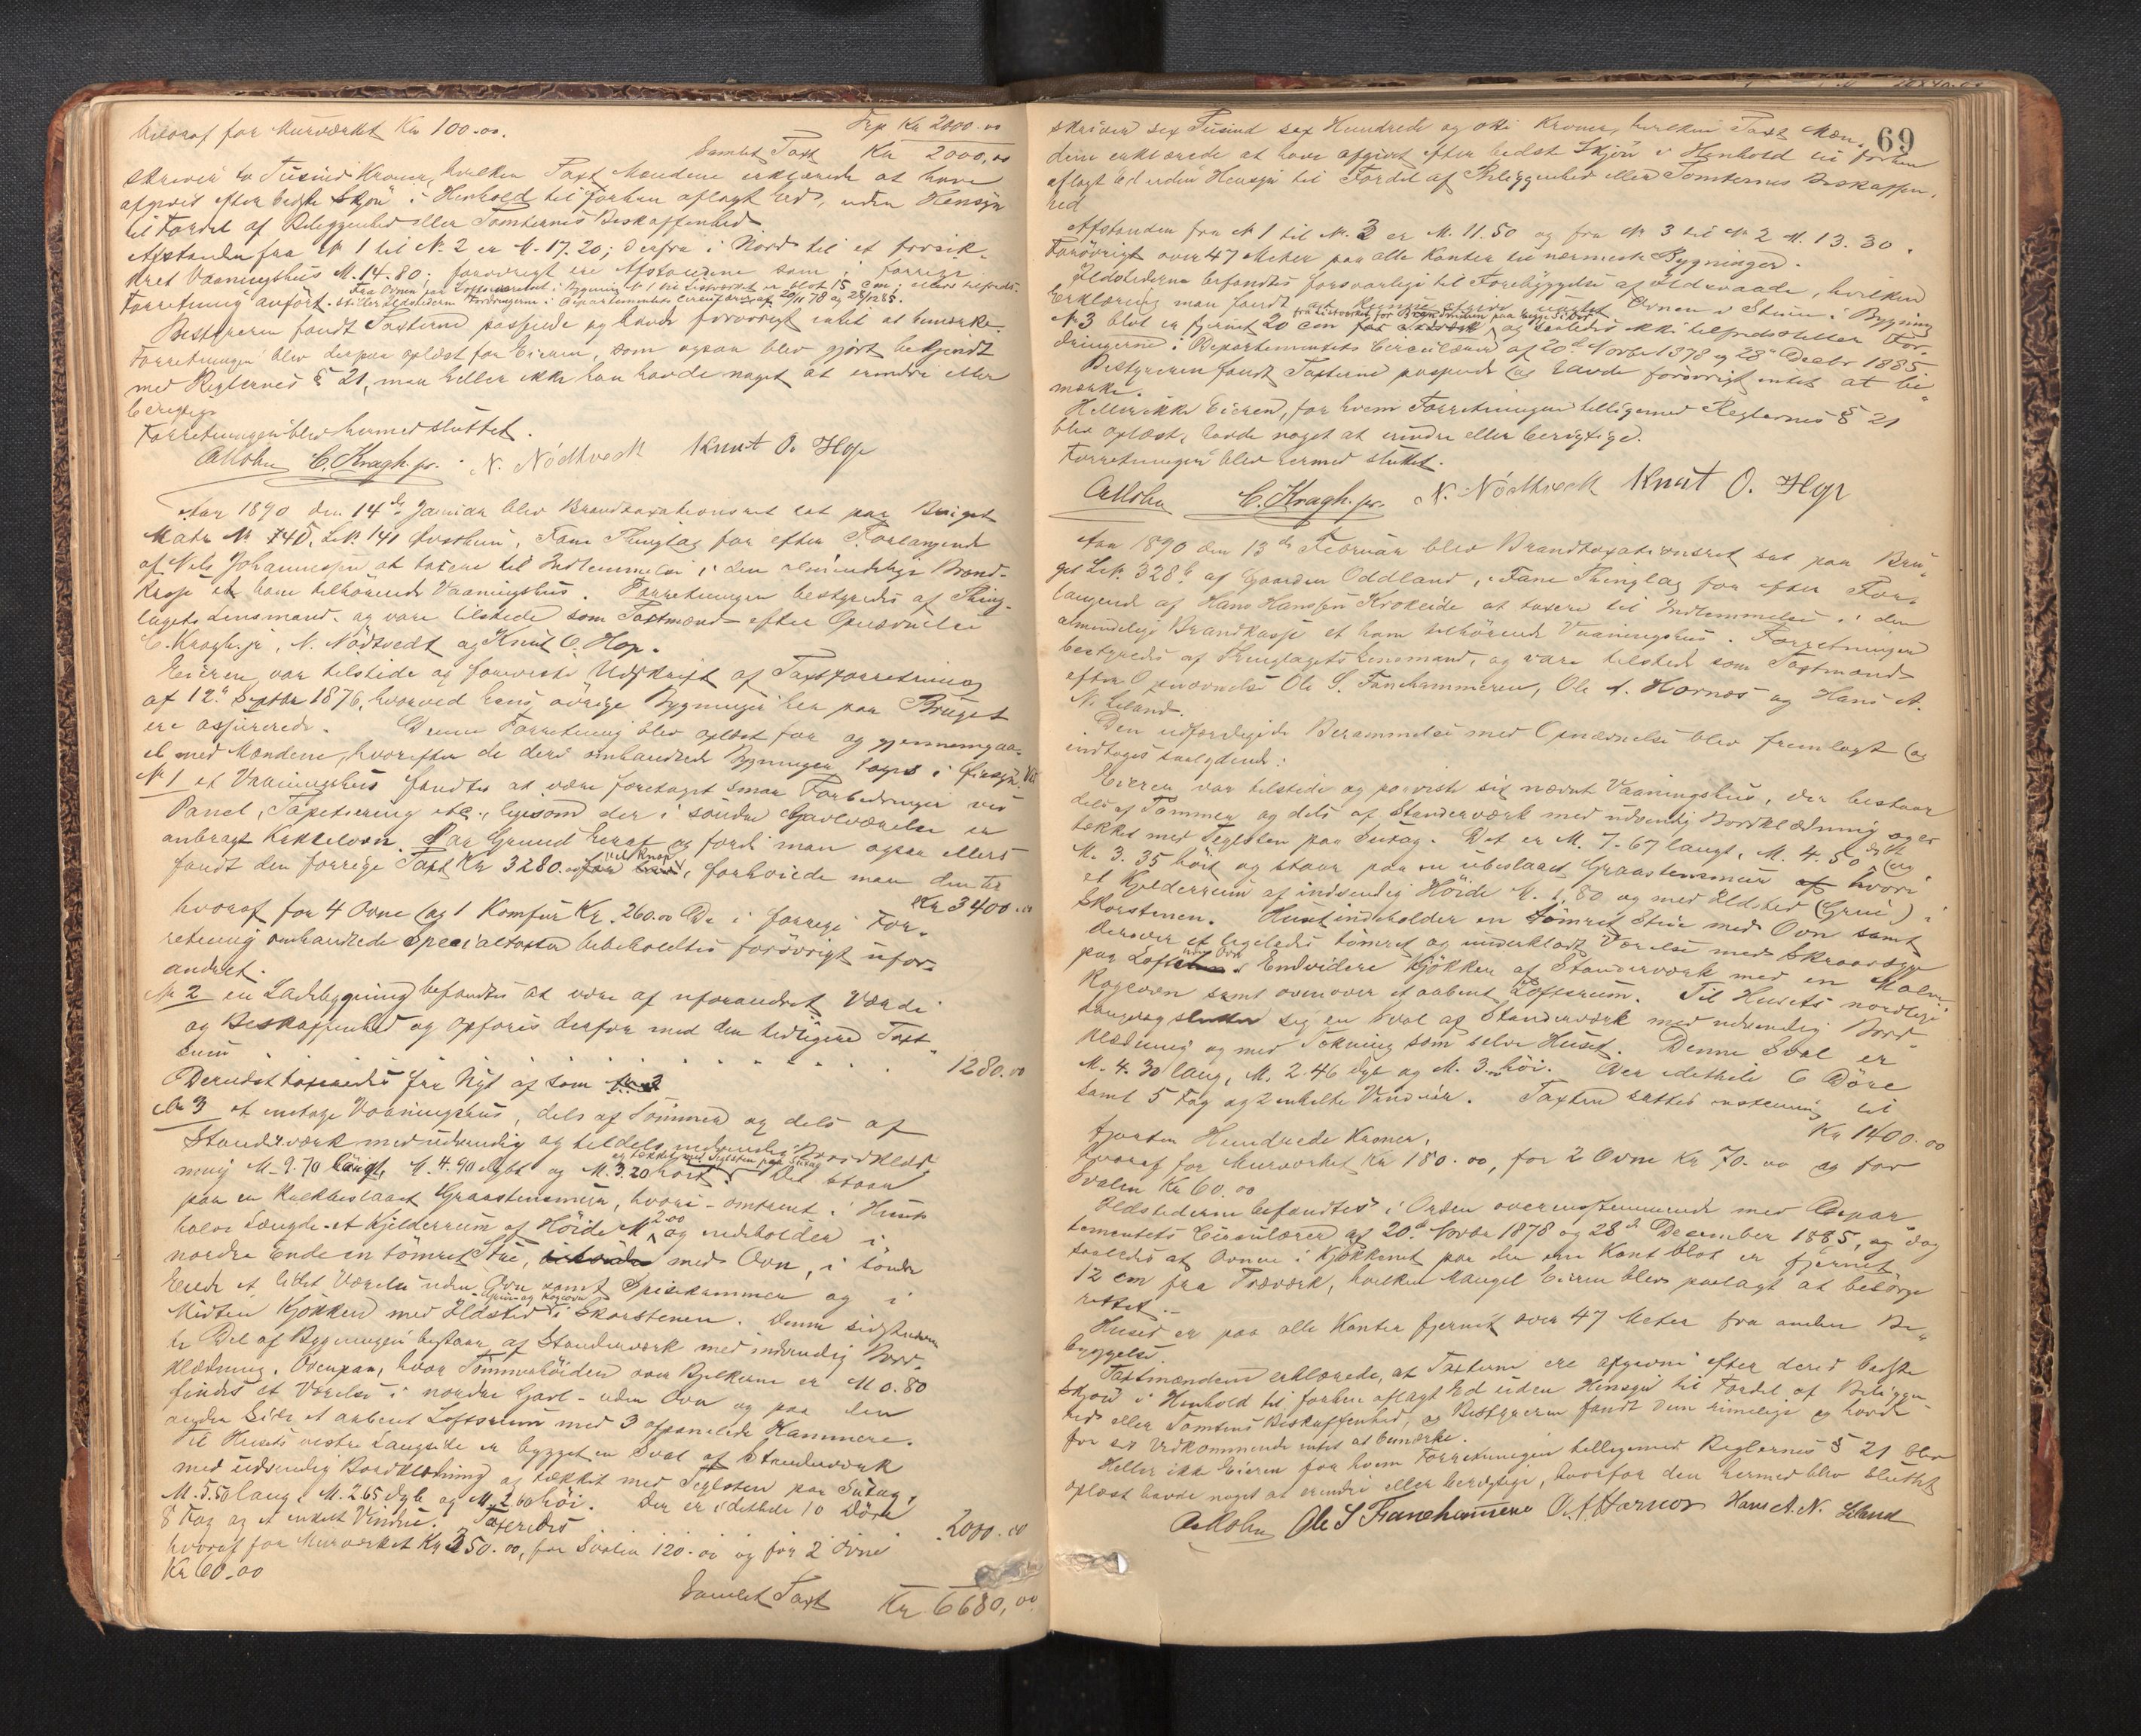 hvoraf for Murværket Kr 100.00.
Trp Kr 2000.00
Samlet Taxt Kr 2000,00
skriver to Tusind Kroner, hvilken Taxt Mændene erklærede at have
afgivet efter bedste Skjøn i Henhold til forhen aflagt Ed, uden Hensyn
til Fordel af Beliggenhed eller Tomternes Beskaffenhed
Afstanden fra N 1 til N. 2 er M. 17.20; derfra i Nord til et forsik-
kret Vaaningshus M. 14.80; forøvrigt ere Afstandene som i forrige
Forretning anført. Fra Ovnen paa Loftsværelset i Bygning N 1 til Træværket er blot 15 cm; ellers tilfreds-
stiller Ildstederne Fordringerne i Departementets Circulærer af 20/11 78 og 28/12 85.
Bestyreren fandt Taxterne passende og havde forøvrigt intet at bemærke.
Forretningen blev derpaa oplæst for Eieren, som ogsaa blev gjort bekjendt
med Reglernes § 21, men heller ikke han havde noget at erindre eller
berigtige
Forretningen blev hermed sluttet.
C. Kragh. jr. N. Nödtvedt Knut O. Hop
Aar 1890 den 14de Januar blev Brandtaxationsret sat paa Bruget
Matr N 74b, L.N. 141 Øvsthun, Fane Thinglag for efter Forlangende
af Nels Johannessen at taxere til Indlemmelse i den almindelige Brand-
kasse et ham tilhørende Vaaningshus. Forretningen bestyredes af Thing-
lagets Lensmand og vare tilstede som Taxtmænd efter Opnævnelse
C. Kragh. jr, N. Nödtvedt og Knut O. Hop.
Eieren var tilstede og foreviste Udskrift af Taxtforretning
af 12te Septbr 1876, hvorved hans øvrige Bygninger her paa Bruget
ere assurerede. Denne Forretning blev oplæst for og gjennemgaa-
et med Mændene, hvorefter de deri omhandlede Bygninger toges i Øiesyn.
N 1 et Vaaningshus fandtes at være foretaget smaa Forbedringer ved
Panel, Tapetsering etc., ligesom der i søndre Gavlværelse er
anbragt Kakkelovn. Paa Grund heraf og fordi man ogsaa ellers
fandt den forrige Taxt Kr 3280.00 vel knap, forhøiede man den til
Kr 3400.00
hvoraf for 4 Ovne og 1 Komfur Kr. 260.00 De i forrige For-
retning omhandlede Specialtaxter bibeholdtes forøvrigt ufor-
andret.
N 2 en Ladebygning befandtes at være af uforandret Værdi
og Beskaffenhed og opføres derfor med den tidligere Taxt-
sum . . . . . . . . . 1280.00
Derudst taxeredes fra Nyt af som N 3
N 3 et enetages Vaaningshus, dels af Tømmer og dels af
Standerværk med udvendig og tildels indvendig Bordklæd-
ning M. 9.70 langt, M. 4.90 dybt og M. 3.20 høit er tækket med Teglsten paa Sutag. Det staar
paa en kalkbeslaaet Graastensmur, hvori - omtrent i Huset
halve Længde - et Kjelderrum af Høide M 2.00 og indeholder i
nordre Ende en tømret Stue, med Ovn, i søndre
Ende et lidet Værelse uden Ovn samt Spisekammer og i
Midten Kjøkken med Ildsted Grue og Kogeovn i Skorstenen. Denne sidstnævn-
te Del af Bygningen bestaar af Standerværk med indvendig Bord-
klædning. Ovenpaa, hvor Tømmerhøiden over Bjelkerne er M 0.80
findes et Værelse i nordre Gavl - uden Ovn og paa den
anden Side et aabent Loftsrum med 3 afpanelede Kammere.
Til Husets vestre Langside er bygget en Sval af Standerværk
med udvendig Bordklædning og tækket med Teglsten paa Sutag,
M. 5.50 lang, M. 2.65 dyb og M. 2.60 høi. Der er idethele 10 Døre
8 Fag og et enkelt Vindue. Taxeredes 2000.00
hvoraf for Murværket Kr 250.00, for Svalen 120.00 og for 2 Ovne
Kr 60.00
Samlet Taxt Kr 6680,00
69
skriver sex Tusind sex Hundrede og otti Kroner, hvilken Taxt Mæn-
dene erklærede at have afgivet efter bedste Skjøn i Henhold til forhen
aflagt Ed uden Hensyn til Fordel af Beliggenhed eller Tomternes Beskaffen-
hed
Afstanden fra N 1 til N. 3 er M. 11.50 og fra N 3 til N 2 M. 13.30.
Forøvrigt over 47 Meter paa alle Kanter til nærmeste Bygninger.
Ildstederne befandtes forsvarlige til Forebyggelse af Ildsvaade, hvilken
Erklæring man fandt at kunne afgive uagtet Ovnen i Stuen i Bygning
N 3 blot er fjernet 20 cm fra Træværket og saaledes ikke tilfredsstiller For-
dringerne i Departementets Circulærer af 20de Novbr 1878 og 28de Decbr 1885.
Bestyreren fandt Taxterne passende og havde forøvrigt intet at be-
mærke.
Heller ikke Eieren, for hvem Forretningen tilligemed Reglernes § 21
blev oplæst, havde noget at erindre eller berigtige.
Forretningen blev hermed sluttet.
C. Kragh. jr. N. Nödtvedt Knut O. Hop
Aar 1890 den 13de Februar blev Brandtaxationsret sat paa Bru-
get L.N. 328b af Gaarden Oddland, i Fane Thinglag for efter For-
langende af Hans Hanssen Krokeide at taxere til Indlemmelse i den
almindelige Brandkasse et ham tilhørende Vaaningshus. Forretningen
bestyredes af Thinglagets Lensmand, og vare tilstede som Taxtmænd
efter Opnævnelse Ole S. Fanehammeren, Ole A. Hornæs og Hans A.
N. Liland.
Den udfærdigede Berammelse med Opnævnelse blev fremlagt og
indtages saalydende:
Eieren var tilstede og paaviste sig nævnt Vaaningshus, der bestaar
dels af Tømmer og dels af Standerværk med udvendig Bordklædning og er
tækket med Teglsten paa Sutag. Det er M. 7.67 langt, M. 4.50 dybt og
M. 3.35 høit og staar paa en ubeslaaet Graastensmur hvori
et Kjelderrum af indvendig Høide M. 1,80 og med Ildsted (Grue) i
Skorstenen. Huset indeholder en tømret Stue med Ovn samt
derover et ligeledes tømret og underklædt Værelse med Skraavæg
paa Loftet uden Ovn. Endvidere Kjøkken af Standerværk med en Malm
Kogeovn samt ovenover et aabent Loftsrum. Til Husets nordlige
Langvæg slutter sig en Sval af Standerværk med udvendig Bord-
klædning og med Tækning som selve Huset. Denne Sval er
M. 4.30 lang, M. 2.46 dyb og M. 3.00 høi. Der idethele 6 Døre
samt 5 Fag og 2 enkelte Vinduer. Taxten sættes til
Kr 1400.00
fjorten Hundrede Kroner,
hvoraf for Murværket Kr 180.00, for 2 Ovne Kr 70.00 og for
Svalen Kr 60.00
Ildstederne befandtes i Orden overensstemmende med Depar-
tementets Circulærer af 20de Novbr 1878 og 28de December 1885, og dog
saaledes at Ovnen i Kjøkkenet paa den ene Kant blot er fjernet
12 cm fra Træværk, hvilken Mangel Eieren blev paalagt at besørge
rettet.-
Huset er paa alle Kanter fjernet over 47 Meter fra anden Be-
byggelse.
Taxtmændene erklærede, at Taxterne ere afgivne efter deres bedste
Skjøn i Henhold til forhen aflagt Ed uden Hensyn til Fordel af Beliggen-
hed eller Tomtens Beskaffenhed, og Bestyreren fandt dem rimelige og havde
for sit Vedkommende intet at bemærke.
Heller ikke Eieren for hvem Forretningen tilligemed Reglernes § 21 blev
oplæst havde noget at erindre eller berigtige, hvorfor den hermed blev sluttet
Ole S Fanehammeren O. A. Hornæs Hans A. N. Liland